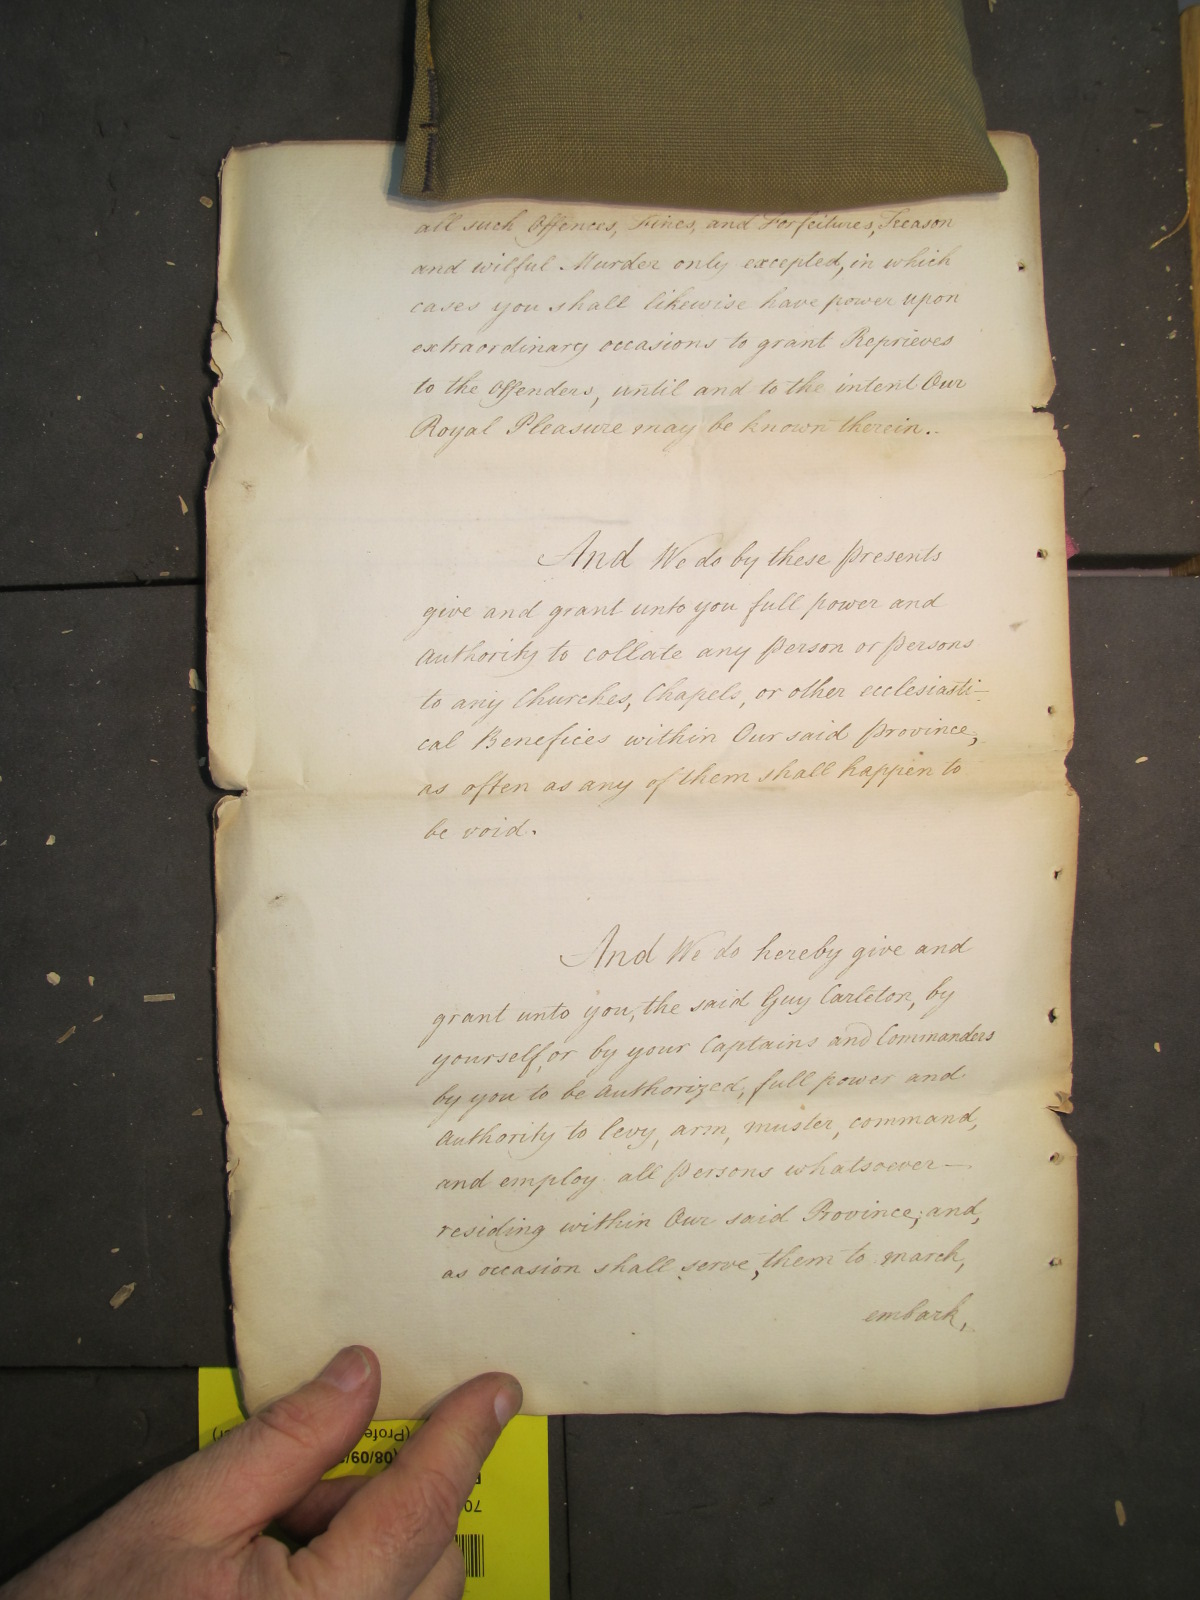 all such Offences, Fines, and Forfeitures, Treason
and wilful Murder only excepted, in which
cases you shall likewise have power upon
extraordinary occasions to grant Reprieves
to the Offenders, until and to the intent Our
Royal Pleasure may be known therein..
And We do by these Presents
give and grant unto you full power and
Authority to collate any Person or Persons
to any Churches, Chapels, or other ecclesiasti-
cal Benefices within Our said Province,
as often as any of them shall happen to
be void.
And We do hereby give and
grant unto you, the said Guy Carleton, by
yourself, or by your Captains and Commanders
by you to be Authorized, full power and
Authority to levy, arm, muster, command,
and employ all Persons whatsoever—
residing within Our said Province; and,
as occasion shall serve, them to march,
embark,
(Profe
(08/09/
70